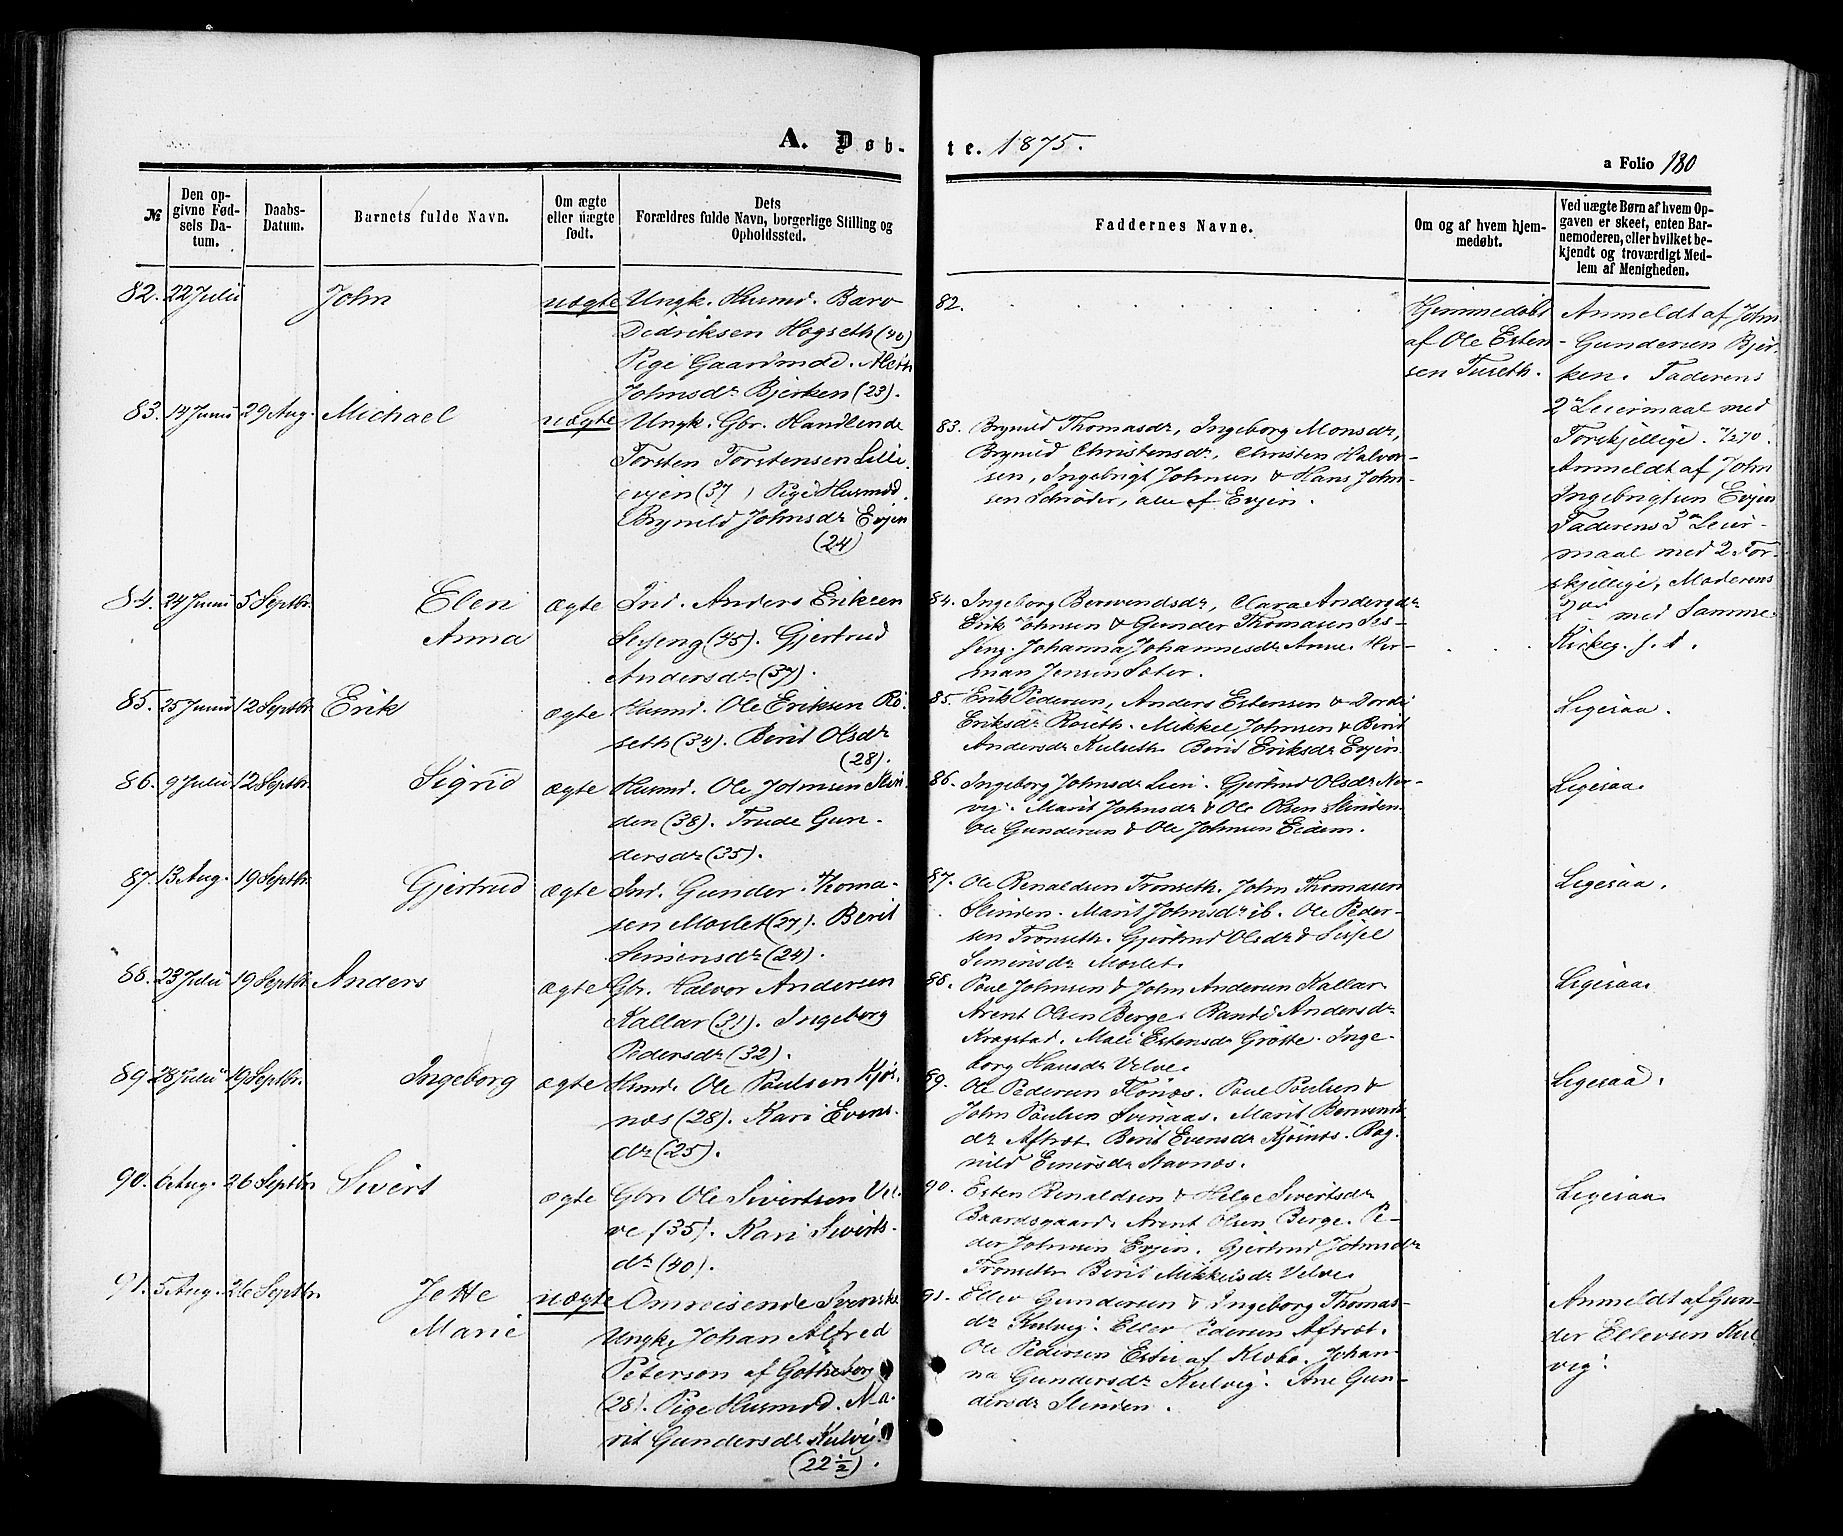 A. Døb-
te. 1875.
a Folio 180
№
Den op-
givne Fød-
sels Da-
tum.
Daabs-
Datum.
Barnets fulde Navn.
Om ægte
eller uægte
født.
Dets
Forældres fulde Navn, borgerlige Stilling og
Opholdssted.
Faddernes Navne.
Om og af hvem hjem-
medøbt.
Ved uægte Børn af hvem Op-
gaven er skeet, enten Bar-
nemoderen, eller hvilket be-
kjendt og troværdigt Med-
lem af Menigheden.
82. 22 Julii John uægte Ungk. Husmd. Baro
Didriksen Hogseth (40)
Pige Gaardmdd. Mereth
Johnsdr Bjerken (23).
82.
Hjemmedøbt
af Ole Esten
sen Tuseth.
Anmeldt af John
Gundersen Bjer-
ken. Faderens
2t Leiermaal med
Forskjellige. 7/270.
83. 14 Junii 29 Aug. Michael uægte Ungk. Gbr. Handlende
Torsten Torstensen Lille
evjen (37) Pige Husmdd.
Brynild Johnsdr Evjen
(24)
83. Brynild Thomasdr, Ingeborg Monsdr,
Brynild Christensdr, Christen Halvor-
sen, Ingebrigt Johnsen & Hans John-
sen Schrøder, alle af Evjen.
Anmeldt af John
Ingebrigtsen Evjen
Faderens 3die Leier-
maal med 2 For-
skjellige, Moderens
2det med Samme.
84. 24 Junii 5 Septbr. Elen
Anna
ægte Ind. Anders Eriksen
Sesseng (45). Gjertrud
Andersdr (37).
84. Ingeborg Berwendsdr, Clara Andersdr
Erik Johnsen & Gunder Thomasen Ses-
seng. Johanna Johannesdr Aune. Her-
man Jensen Sæter.
Kirkeg. f. d.
85. 25 Junii 12 Septbr. Erik ægte Husmd. Ole Eriksen Ro-
seth (34). Berit Olsdr
(28).
85. Erik Pedersen, Anders Estensen & Dordi
Eriksdr Roseth. Mikkel Johnsen & Berit
Andersdr Kulseth. Berit Eriksdr Evjen.
Ligesaa.
86. 9 Julii 12 Septbr. Sigrid ægte Husmd. Ole Johnsen Slin
den (38). Trude Gun-
dersdr (35).
86. Ingeborg Johnsdr Lien. Gjertrud Olsdr Nor-
vig. Marit Johnsdr & Ole Olsen Slinden.
Ole Gundersen & Ole Johnsen Eidem.
Ligesaa
87. 13 Aug. 19 Septbr. Gjertrud ægte Ind. Gunder Thoma-
sen Moslet (27). Berit
Simensdr (24).
87. Ole Renaldsen Tronseth. John Thomasen
Slinden. Marit Johnsdr ib. Ole Peder-
sen Tronseth. Gjertrud Olsdr & Sissel
Simensdr Moslet.
Ligesaa.
88. 23 Julii 19 Septbr. Anders ægte Gbr. Halvor Andersen
Kallar (31). Ingeborg
Pedersdr (32).
88. Poul Johnsen & John Andersen Kallar.
Arent Olsen Berge. Randi Andersdr
Kragstad. Mali Estensdr Grøtte. Inge-
borg Hansdr Velve.
Ligesaa
89. 28 Julii 19 Septbr. Ingeborg ægte Husmd. Ole Poulsen Kjøs-
næs (28). Kari Evens-
dr (25).
89. Ole Pedersen Flønæs. Poul Poulsen &
John Poulsen Svinaas. Marit Berwends
dr Aftret. Berit Evensdr Kjøsnæs. Rag-
nild Einersdr Stavnæs.
Ligesaa.
90. 6 Aug. 26 Septbr. Sivert ægte Gbr. Ole Sivertsen Vel-
ve (35). Kari Siverts-
dr (40).
90. Esten Renaldsen & Helge Sivertsdr
Baardsgaard. Arent Olsen Berge. Pe-
der Johnsen Evjen. Gjertrud Johnsdr
Tronseth Berit Mikkelsdr Velve.
Ligesaa
91. 5 Aug. 26 Septbr. Jette
Marie
uægte Omreisende Svenske
Ungk. Johan Alfred
Peterson af Gotheborg
(28). Pige Husmdd. Ma-
rit Gundersdr Kulvig
(22 1/2).
91. Ellev Gundersen & Ingeborg Thomas-
dr Kulvig. Ellev Pedersen Aftret.
Ole Pedersen Estu af Klæbo. Johan-
na Gundersdr Kulvig. Ane Gun-
dersdr Slinden.
Anmeldt af Gun-
der Ellevsen Kul
vig.